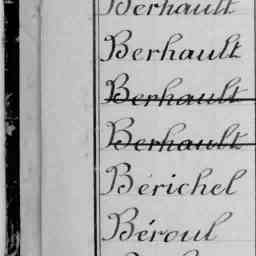 Berhault
Berhault
Berhault
Berhault
Bérichel
Béroul